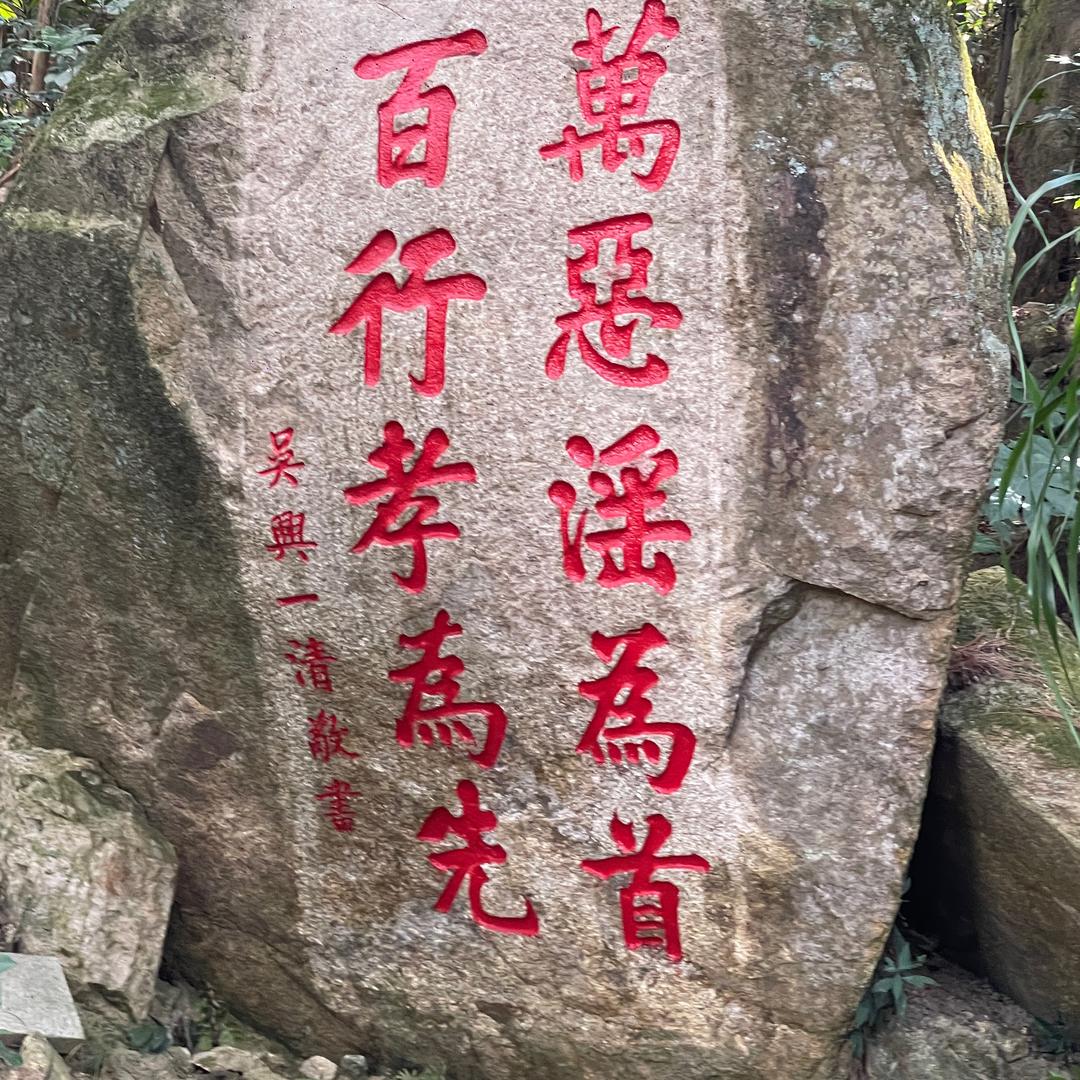 萬惡滛為首
百行孝為先
吳興一清敬書